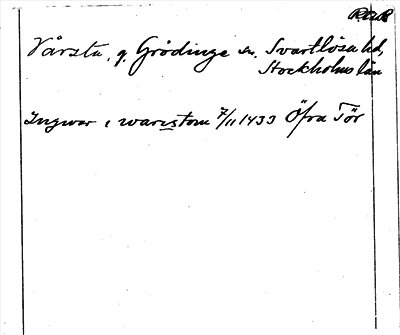 Vårsta, g. Grödinge sn. Svartlösa hd,
Stockholms län
Ingwar i waristom 7/11 1433 Öfra Tör